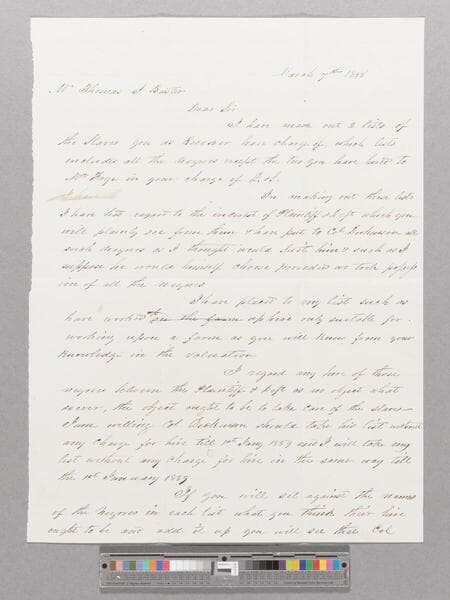 March 7th 1858
Mr Thomas J Baster
Dear Sir
I have made out 2 lists of
the slaves you as Receiver have charge of, which lists
includes all the negroes except the two you have hired to
Mr in your charge of
In making out these lists
I have had regard to the interest of Plaintiff & Deft which you
will plainly see from them & have put to Col Dickinson all
such negroes as I thought would suit him & such as I
suppose he would himself choose provided we took possess
ion of all the negroes
I have placed to my list such as
have worked in the farm up here only suitable for
working upon a farm as you will know from your
Knowledge in the valuation
I regard any hire of these
negroes between the Plaintiff & Deft as no object what
ever, the object ought to be to take care of the slaves
I am willing Col Dickinson should take his list without
any charge for hire till 1st Jany 1859 and I will take my
list without any charge for hire in the same way till
the 1st January 1859
If you will set against the names
of the Negroes in each list what you think their hire
ought to be and add it up you will see that Col